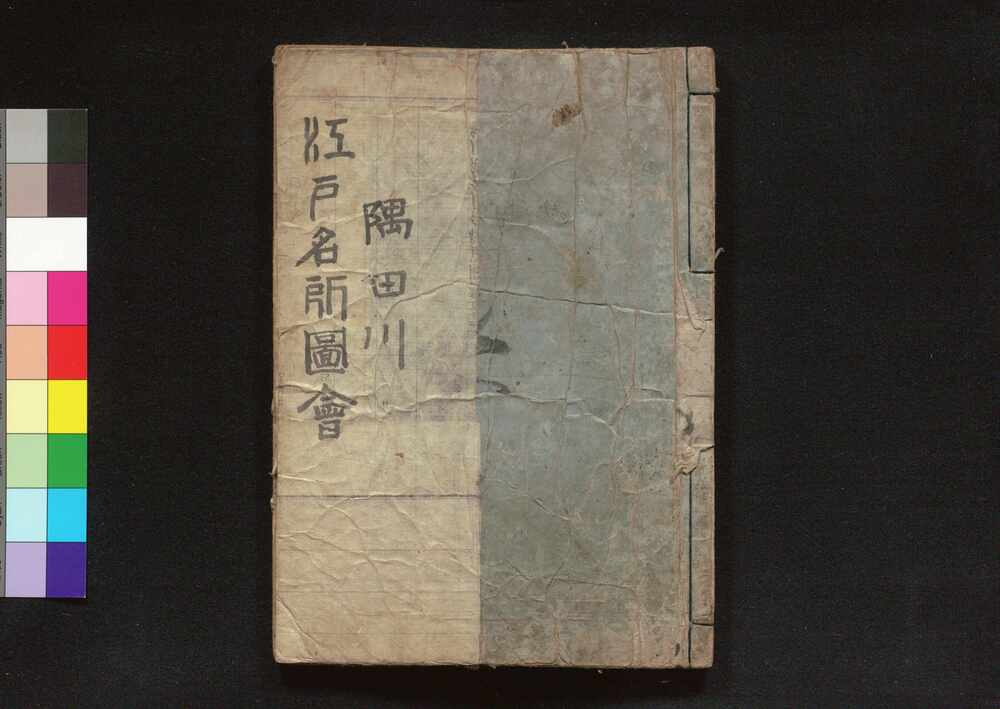 隅田川
江戸名所圖會